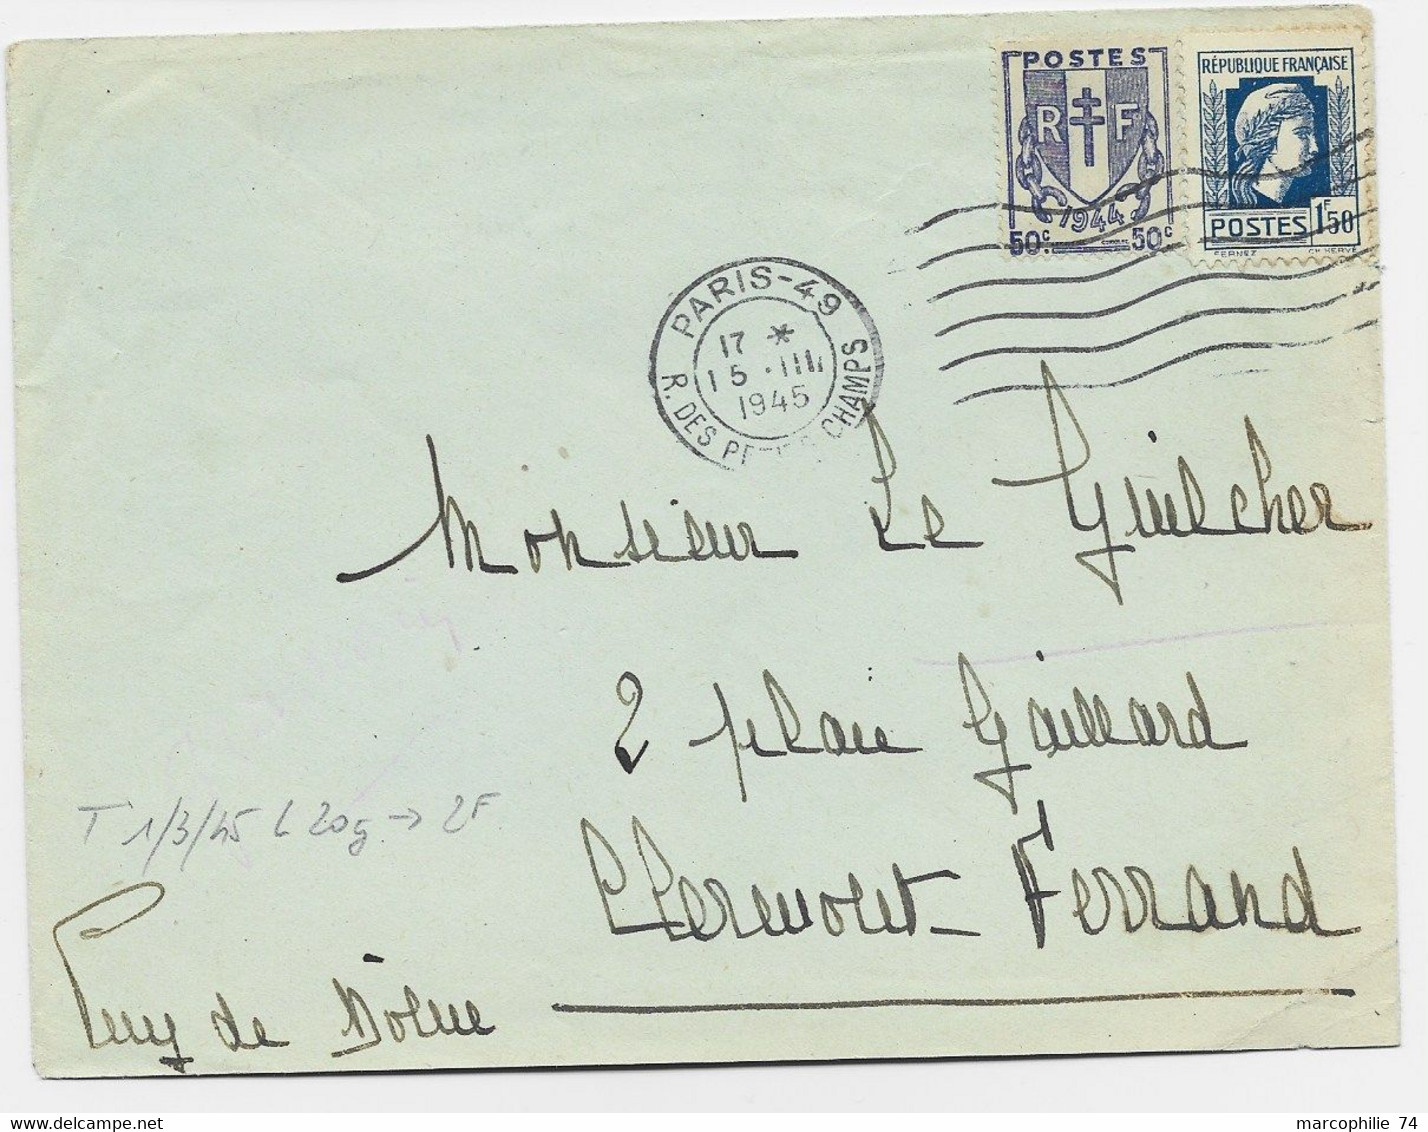 POSTES
R F
1944
50c. 50c
RÉPUBLIQUE FRANÇAISE
POSTES 1F50
FERNEZ CH. HERVÉ
PARIS-49
17 *
15 · III
1945
R. DES PETITS CHAMPS
Monsieur Le Guilcher
2 place Gaillard
T 1/3/45 L 20g → 2F
Clermont-Ferrand
Puy de Dôme
marcophilie 74